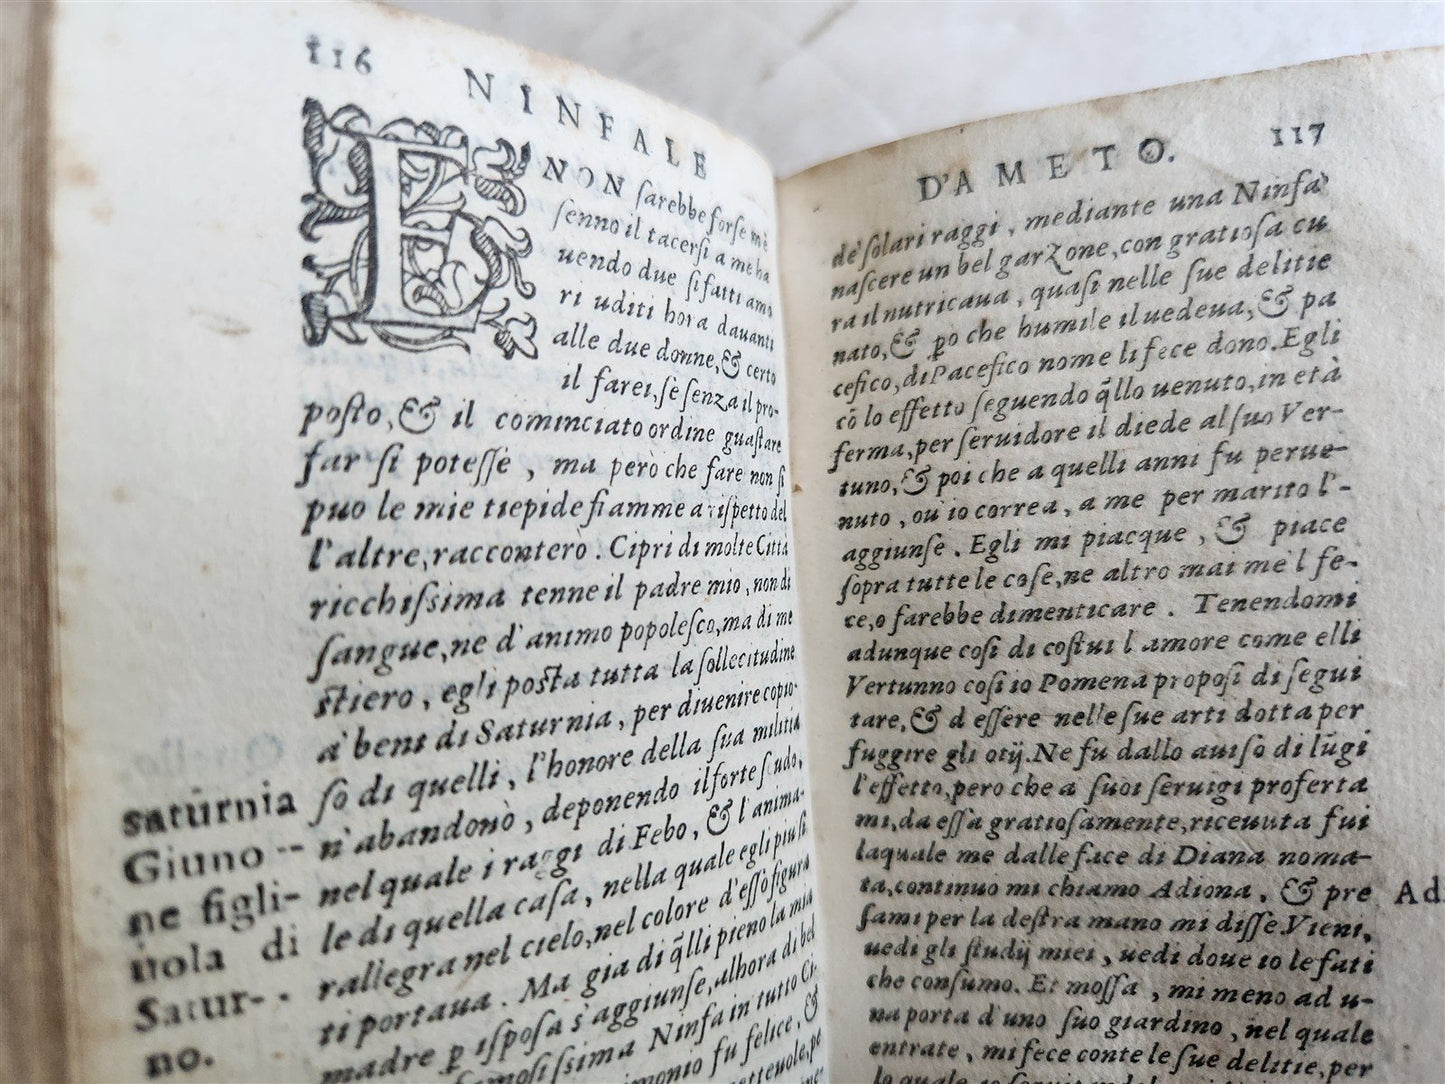 116
NINFALE
E
NON ſarebbe forſe mẽ
ſenno il tacerſi a me ha
uendo due ſi fatti amo
ri uditi hora dauanti
alle due donne, & certo
il farei, ſè ſenza il pro-
poſto, & il cominciato ordine guaſtare
far ſi poteſſè, ma però che fare non ſi
puo le mie tiepide fiamme a riſpetto del
l'altre, racconterò. Cipri di molte Città
ricchiſſima tenne il padre mio, non di
ſangue, ne d'animo popoleſco, ma di me
ſtiero, egli poſta tutta la ſollecitudine
a' beni di Saturnia, per diuenire copio-
ſo di quelli, l'honore della ſua militia
n'abandonò, deponendo il forte ſcudo,
nel quale i raggi di Febo, & l'anima-
le di quella caſa, nella quale egli piu ſi
rallegra nel cielo, nel colore d'eſſo figura
ti portaua. Ma gia di q̃lli pieno la mia
madre ꝑ iſpoſa s'aggiunſe, alhora di bel
Ninfa in tutto Ci-
monio fu felice, &
saturnia
Giuno--
ne figli-
uola di
Satur--
no.
D'AMETO.
117
de' ſolari raggi, mediante una Ninfa
naſcere un bel garzone, con gratioſa cu
ra il nutricaua, quaſi nelle ſue delitie
nato, & ꝑo che humile il uedeua, & pa
cefico, di Pacefico nome li fece dono. Egli
cõ lo effetto ſeguendo q̃llo uenuto, in età
ferma, per ſeruidore il diede al ſuo Ver-
tuno, & poi che a quelli anni fu perue-
nuto, ou' io correa, a me per marito l'-
aggiunſe. Egli mi piacque, & piace
ſopra tutte le coſe, ne altro mai me'l fe-
ce, o farebbe dimenticare. Tenendomi
adunque coſi di coſtui l amore come elli
Vertunno coſi io Pomena propoſi di ſegui
tare, & d eſſere nelle ſue arti dotta per
fuggire gli otij. Ne fu dallo auiſo di lũgi
l'effetto, pero che a ſuoi ſeruigi proferta
mi, da eſſa gratioſamente, riceuuta fui
laquale me dalle face di Diana noma-
ta, continuo mi chiamo Adiona, & pre
ſami per la deſtra mano mi diſſe. Vieni,
uedi gli ſtudij miei, uedi doue io le fati
che conſumo. Et moſſa, mi meno ad u-
na porta d'uno ſuo giardino, nel quale
entrate, mi fece conte le ſue delitie, per
Ad